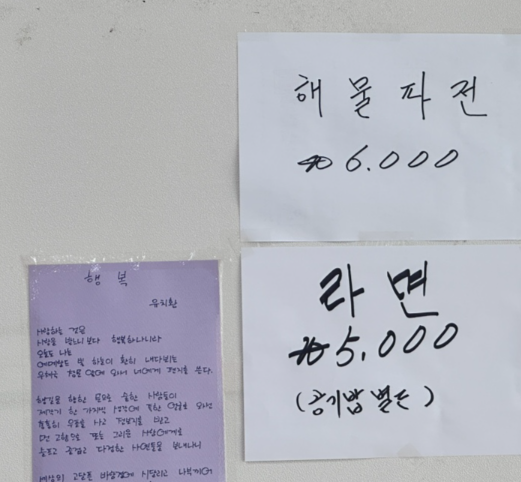 해물파전
₩6.000
라면
₩5.000
(공기밥 별도)
행복
유치환
사랑하는 것은
사랑을 받느니보다 행복하나니라
오늘도 나는
에메랄드 빛 하늘이 환히 내다뵈는
우체국 창문 앞에 와서 너에게 편지를 쓴다.
행길을 향한 문으로 숱한 사람들이
제각기 한 가지씩 생각에 족한 얼굴로 와선
총총히 우표를 사고 전보지를 받고
먼 고향으로 또는 그리운 사람에게로
슬프고 즐겁고 다정한 사연들을 보내나니
세상의 고달픈 바람결에 시달리고 나부끼어